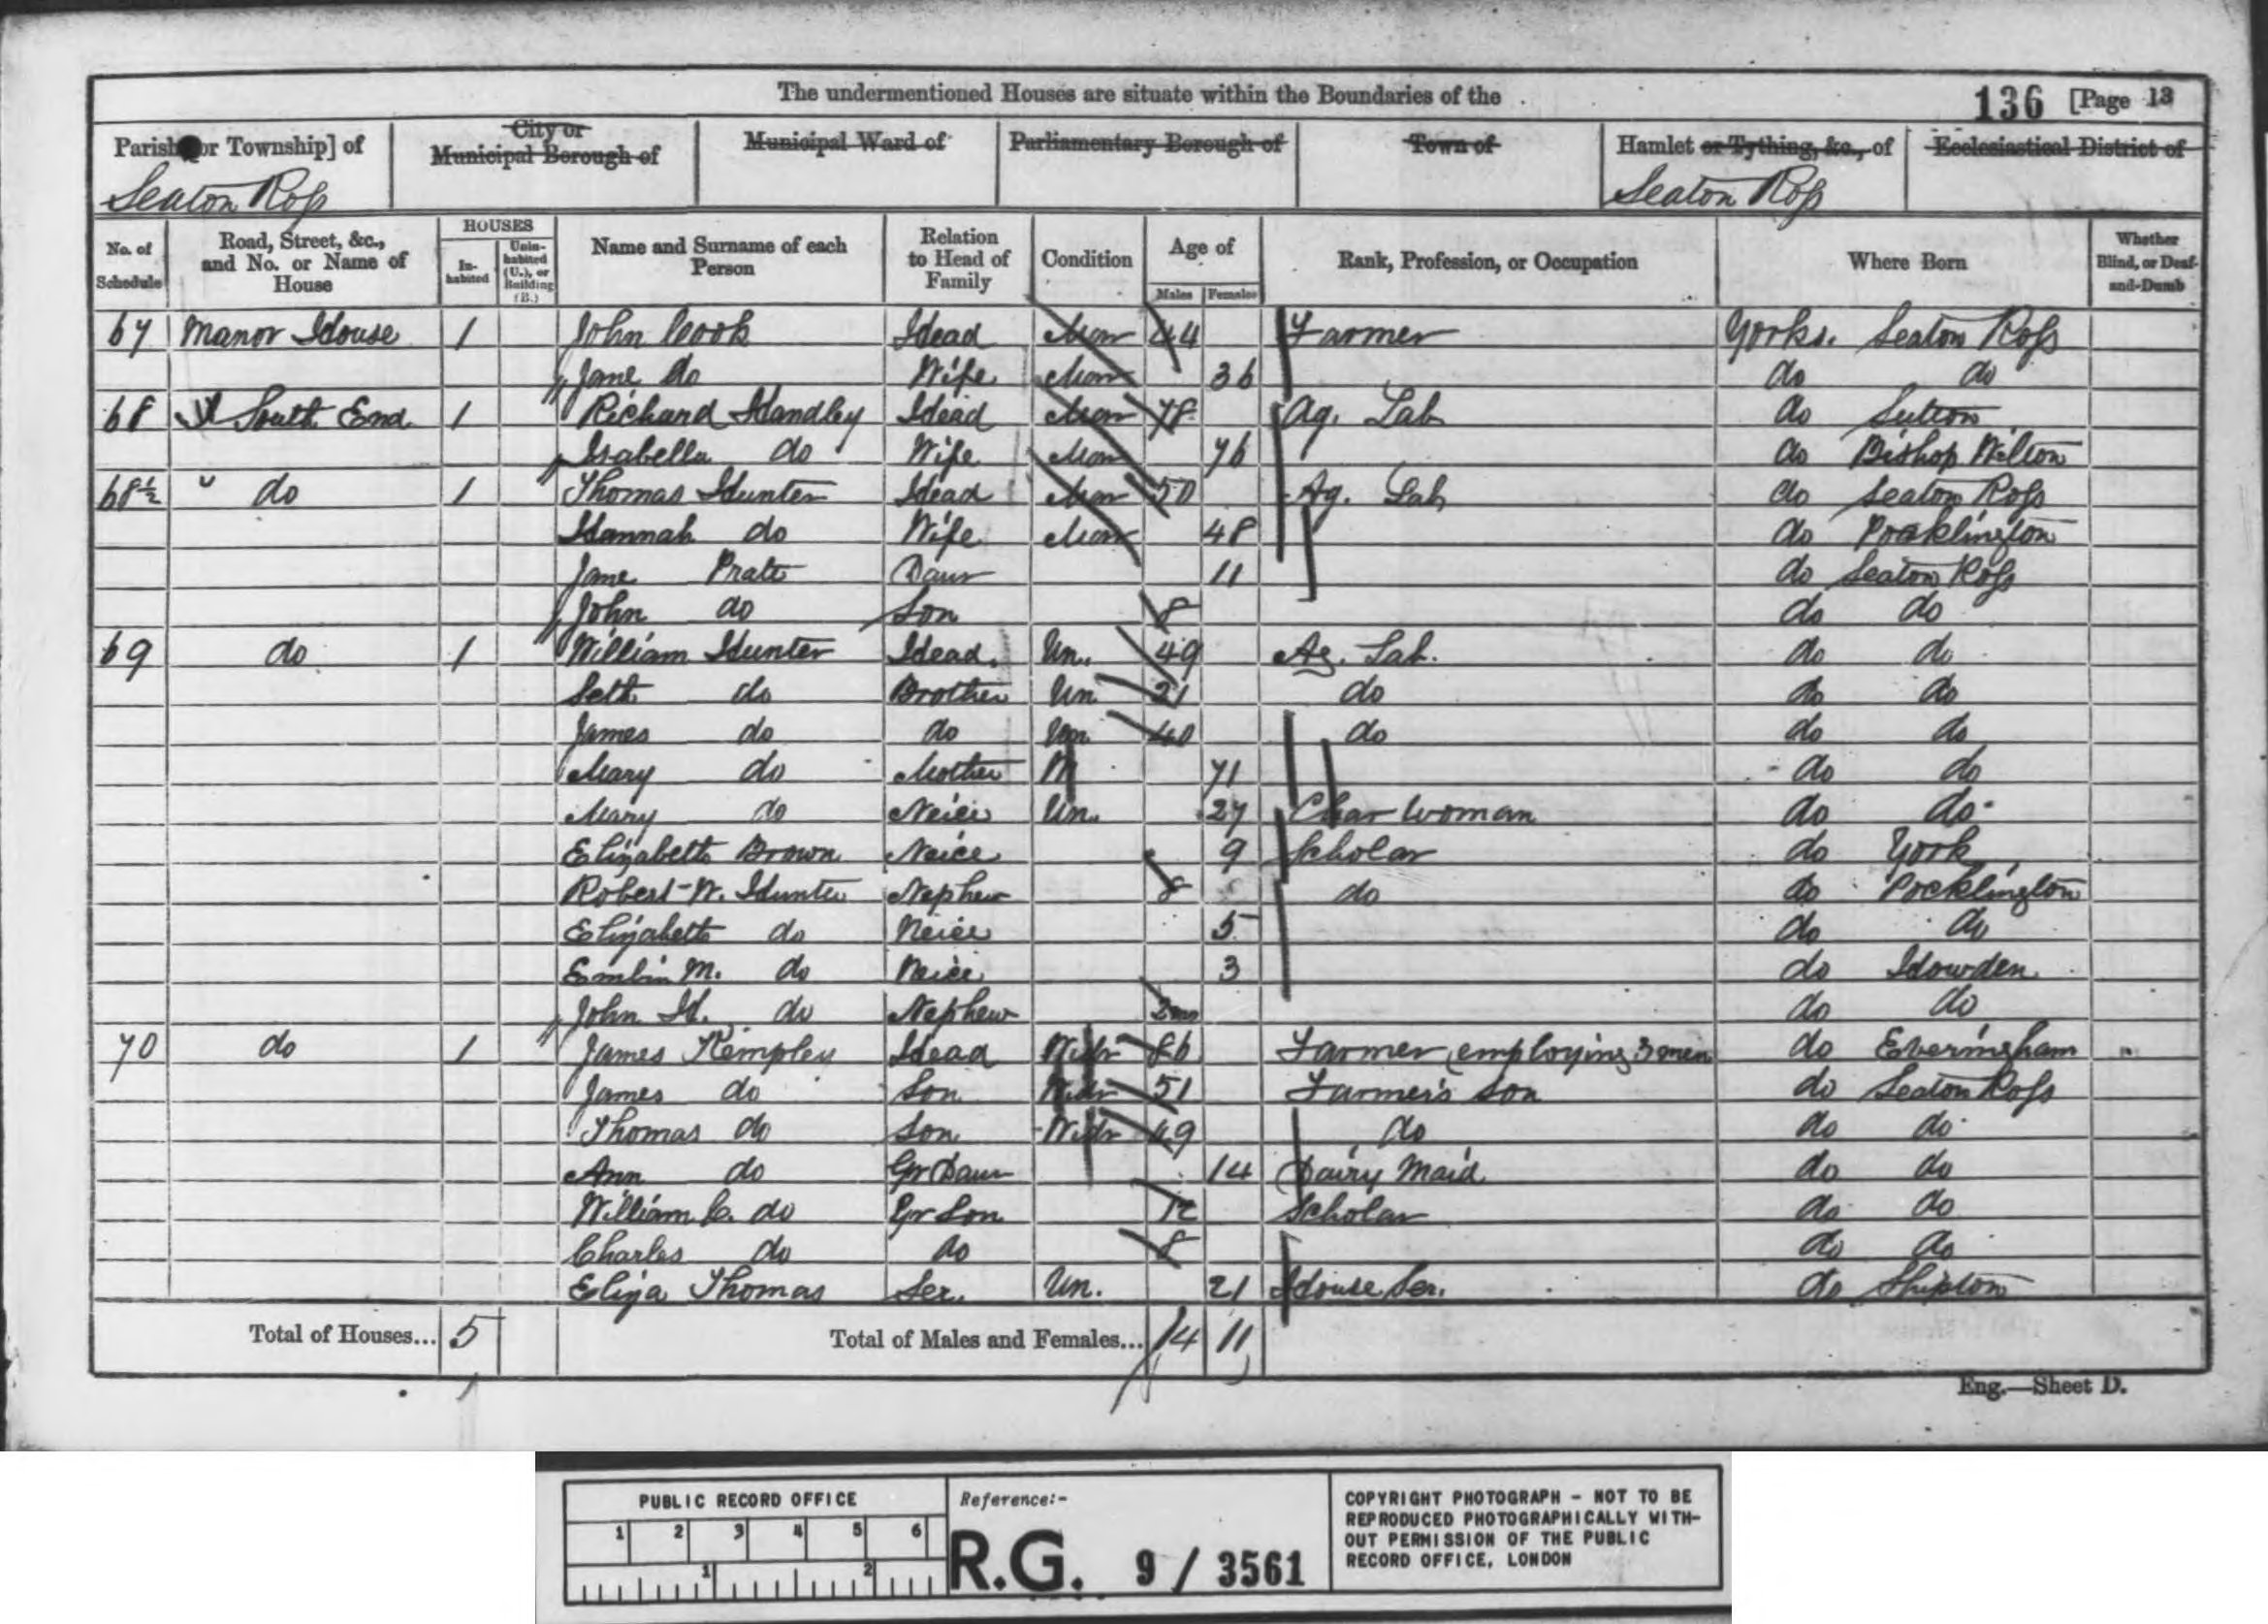 The undermentioned Houses are situate within the Boundaries of the 136 [Page 13
Parish [or Township] of City or Municipal Borough of Municipal Ward of Parliamentary Borough of Town of Hamlet or Tything, &c., of Ecclesiastical District of
Seaton Ross Seaton Ross
No. of Schedule Road, Street, &c., and No. or Name of House HOUSES In-habited Unin-habited (U.), or Building (B.) Name and Surname of each Person Relation to Head of Family Condition Age of Males Females Rank, Profession, or Occupation Where Born Whether Blind, or Deaf-and-Dumb
67 Manor House 1 John Cook Head Mar 44 Farmer Yorks. Seaton Ross
Jane do Wife Mar 36 do do
68 South End 1 Richard Handley Head Mar 78 Ag. Lab do Sutton
Isabella do Wife Mar 76 do Bishop Wilton
68½ " do 1 Thomas Hunter Head Mar 50 Ag. Lab do Seaton Ross
Hannah do Wife Mar 48 do Pocklington
Jane Prate Daur 11 do Seaton Ross
John do Son 8 do do
69 do 1 William Hunter Head. Un. 49 Ag. Lab. do do
Seth do Brother Un 21 do do do
James do do Un 40 do do do
Mary do Mother M 71 do do
Mary do Neice Un. 27 Char woman do do
Elizabeth Brown Neice 9 Scholar do York
Robert W. Hunter Nephew 8 do do Pocklington
Elizabeth do Neice 5 do do
M. do Neice 3 do Howden
John H. do Nephew do do
70 do 1 James Kempley Head Widr 86 Farmer employing 3 men do Everingham
James do Son Widr 51 Farmer's son do Seaton Ross
Thomas do Son Widr 49 do do do
Ann do Gr Daur 14 Dairy Maid do do
William C. do Gr Son 12 Scholar do do
Charles do do 8 do do
Eliza Thomas Ser. Un. 21 House Ser. do Shipton
Total of Houses... 5 Total of Males and Females... 14 11
Eng.—Sheet D.
PUBLIC RECORD OFFICE
1 2 3 4 5 6
1 2
Reference:-
R.G. 9 / 3561
COPYRIGHT PHOTOGRAPH – NOT TO BE
REPRODUCED PHOTOGRAPHICALLY WITH-
OUT PERMISSION OF THE PUBLIC
RECORD OFFICE, LONDON